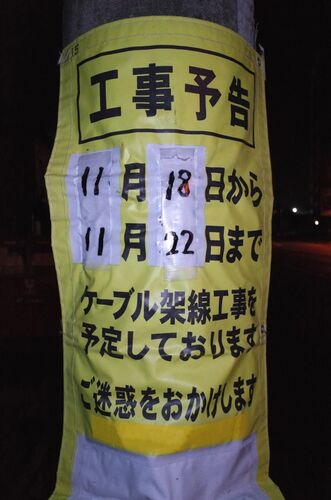 工事予告
11月18日から
11月22日まで
ケーブル架線工事を
予定しております
ご迷惑をおかけします